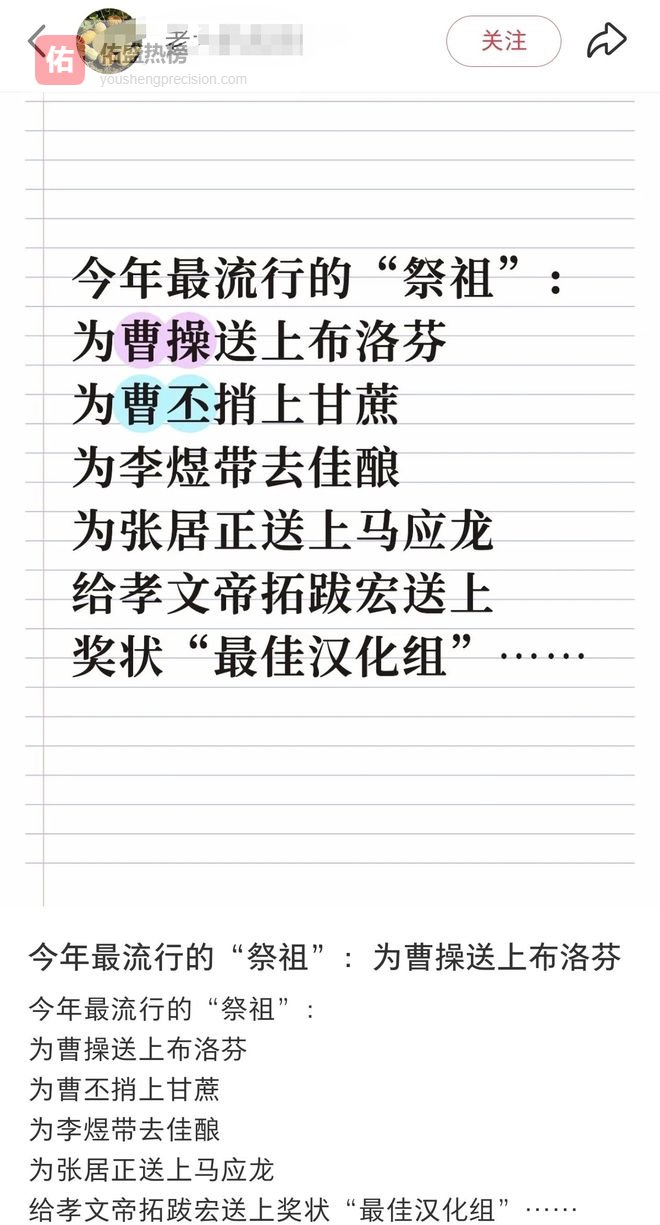 老
关注
佑
佑盛热榜
youshengprecision.com
今年最流行的“祭祖”：
为曹操送上布洛芬
为曹丕捎上甘蔗
为李煜带去佳酿
为张居正送上马应龙
给孝文帝拓跋宏送上
奖状“最佳汉化组”……
今年最流行的“祭祖”：为曹操送上布洛芬
今年最流行的“祭祖”：
为曹操送上布洛芬
为曹丕捎上甘蔗
为李煜带去佳酿
为张居正送上马应龙
给孝文帝拓跋宏送上奖状“最佳汉化组”……